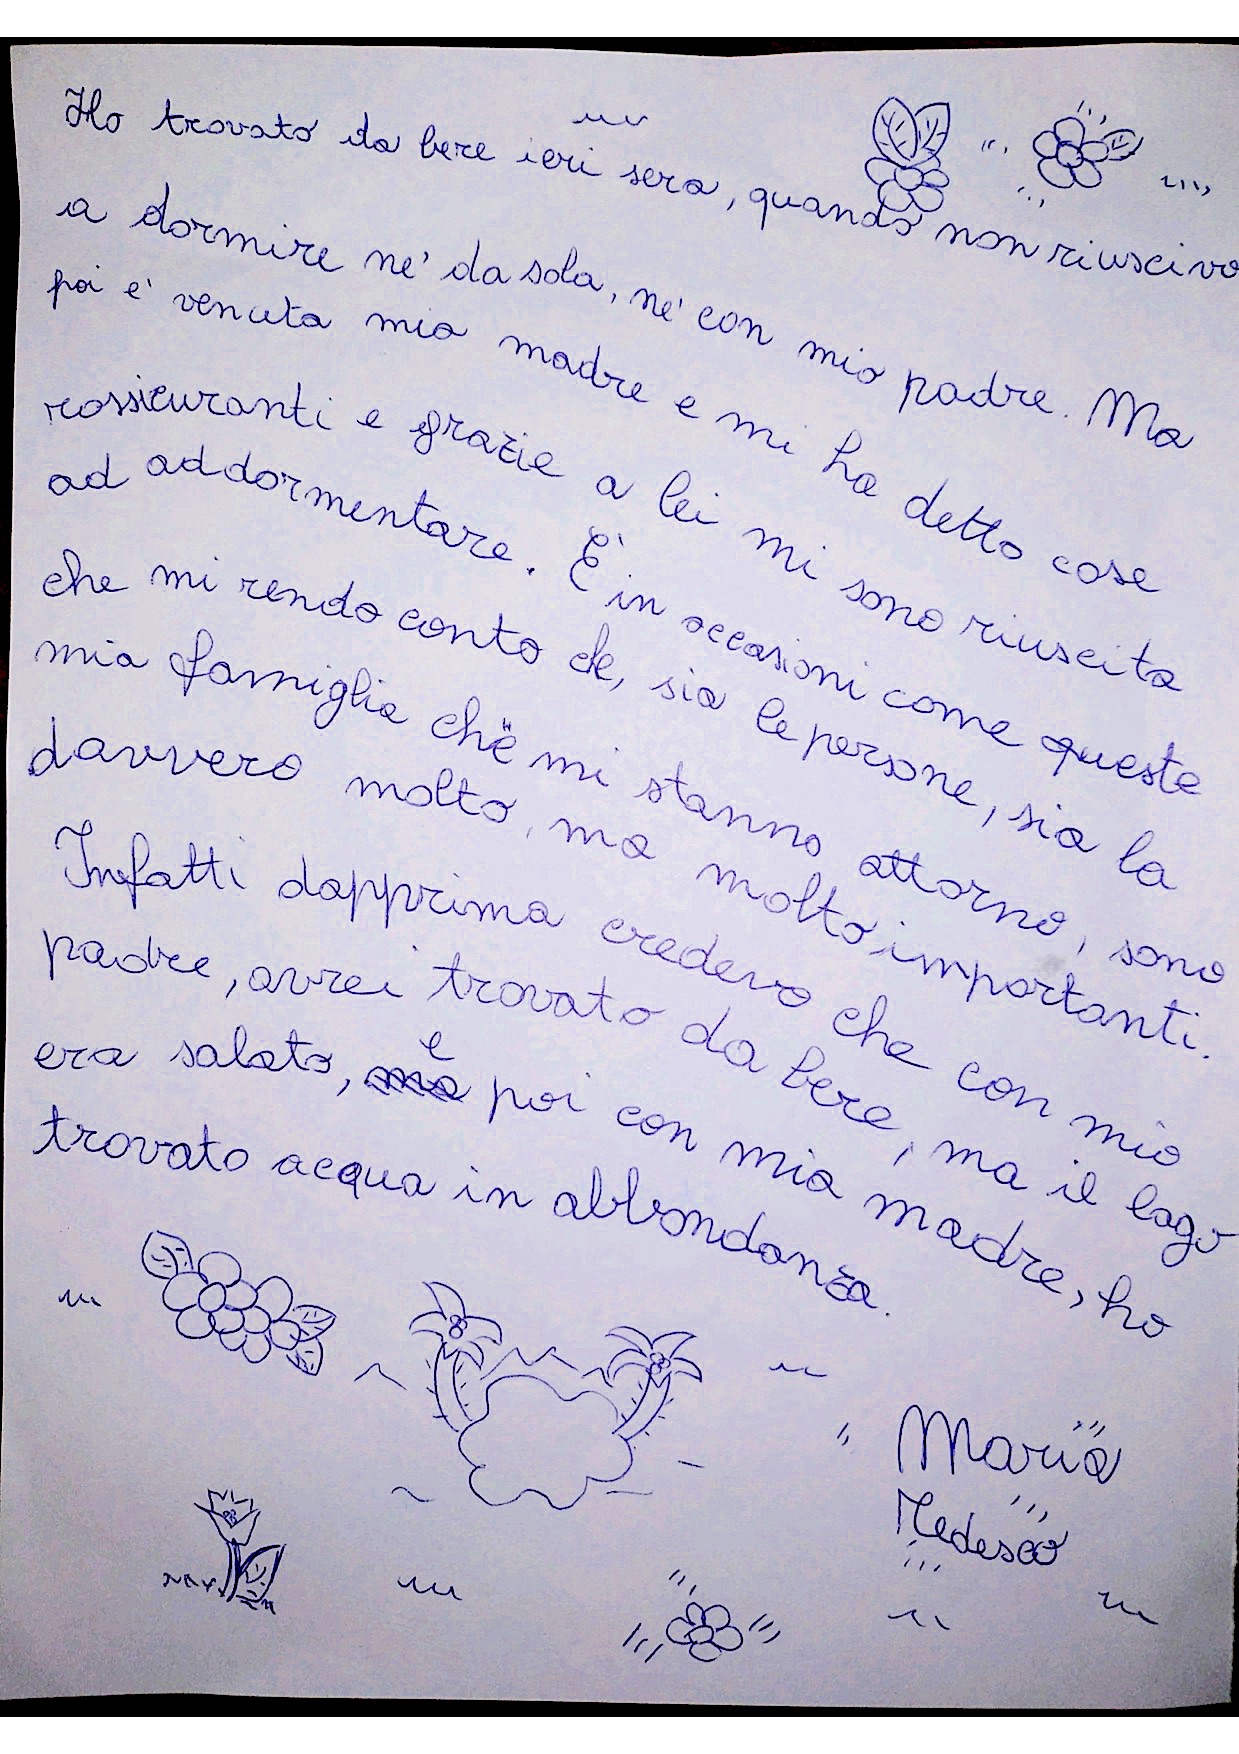 Ho trovato da bere ieri sera, quando non riuscivo
a dormire ne' da sola, ne' con mio padre. Ma
poi e' venuta mia madre e mi ha detto cose
rassicuranti e grazie a lei mi sono riuscita
ad addormentare. E' in occasioni come queste
che mi rendo conto che, sia le persone, sia la
mia famiglia che mi stanno attorno, sono
davvero molto, ma molto importanti.
Infatti dapprima credevo che con mio
padre, avrei trovato da bere, ma il lago
era salato, ma e poi con mia madre, ho
trovato acqua in abbondanza.
Maria
Tedesco